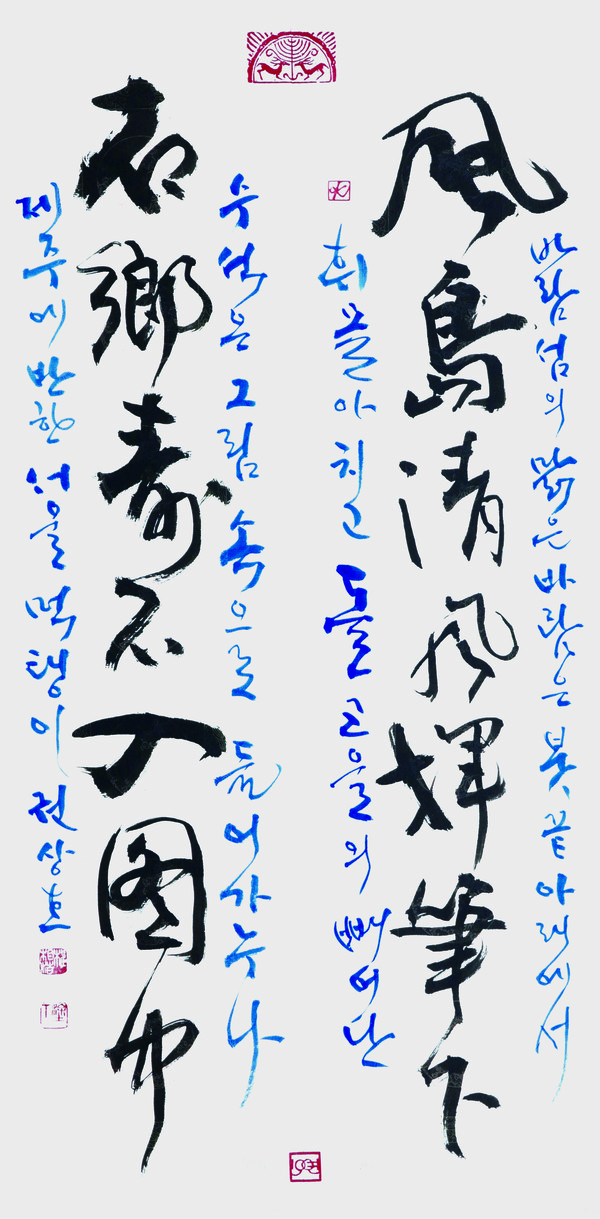 바람섬의 맑은 바람은 붓끝 아래에서
風島清風揮筆下
휘몰아치고 돌 고을의 빼어난
수석은 그림 속으로 들어가누나
石鄉壽石入图中
제주에 반한 서울 먹탱이 권상호